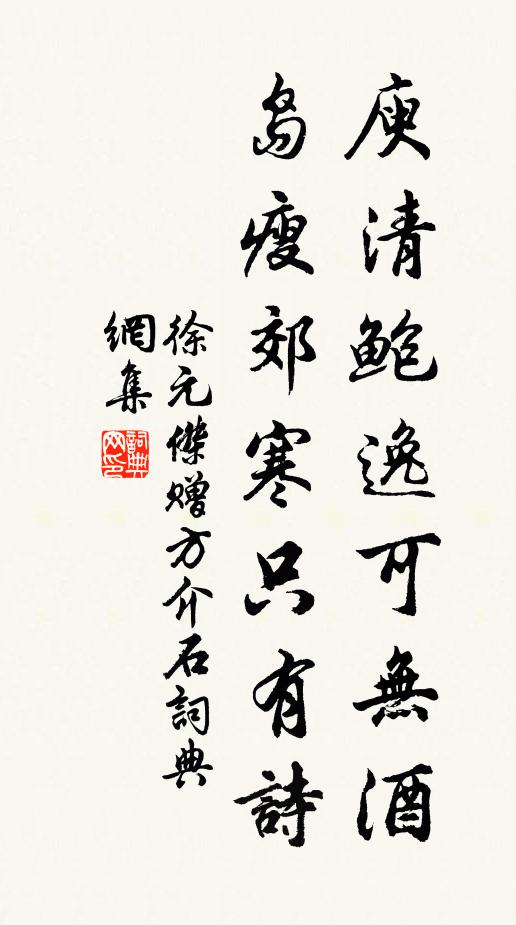 庾清鮑逸可無酒
島瘦郊寒只有詩
徐元傑贈方介石詞典
網集
詞典网印